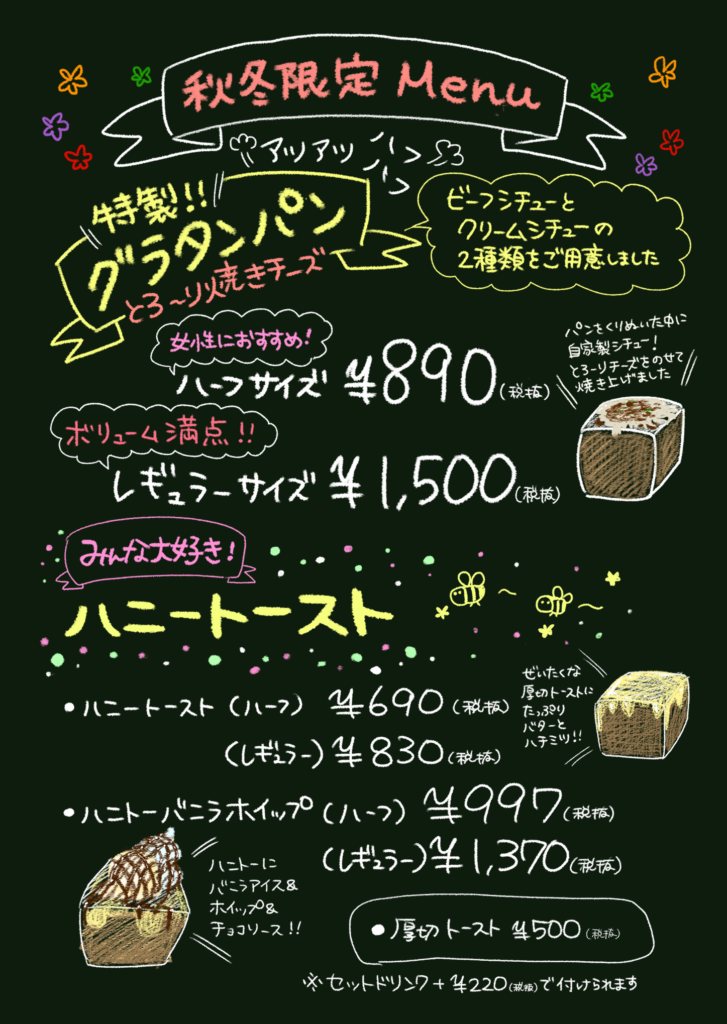 秋冬限定 Menu
アツアツ ハフハフ
特製!!
グラタンパン
とろ〜り焼きチーズ
ビーフシチューと
クリームシチューの
2種類をご用意しました
女性におすすめ!
ハーフサイズ ¥890(税抜)
パンをくりぬいた中に
自家製シチュー!
とろーりチーズをのせて
焼き上げました
ボリューム満点!!
レギュラーサイズ ¥1,500(税抜)
みんな大好き!
ハニートースト
・ハニートースト(ハーフ) ¥690(税抜)
(レギュラー) ¥830(税抜)
ぜいたくな
厚切トーストに
たっぷり
バターと
ハチミツ!!
・ハニトーバニラホイップ(ハーフ) ¥997(税抜)
(レギュラー) ¥1,370(税抜)
ハニトーに
バニラアイス&
ホイップ&
チョコソース!!
・厚切トースト ¥500(税抜)
※セットドリンク+¥220(税抜)で付けられます